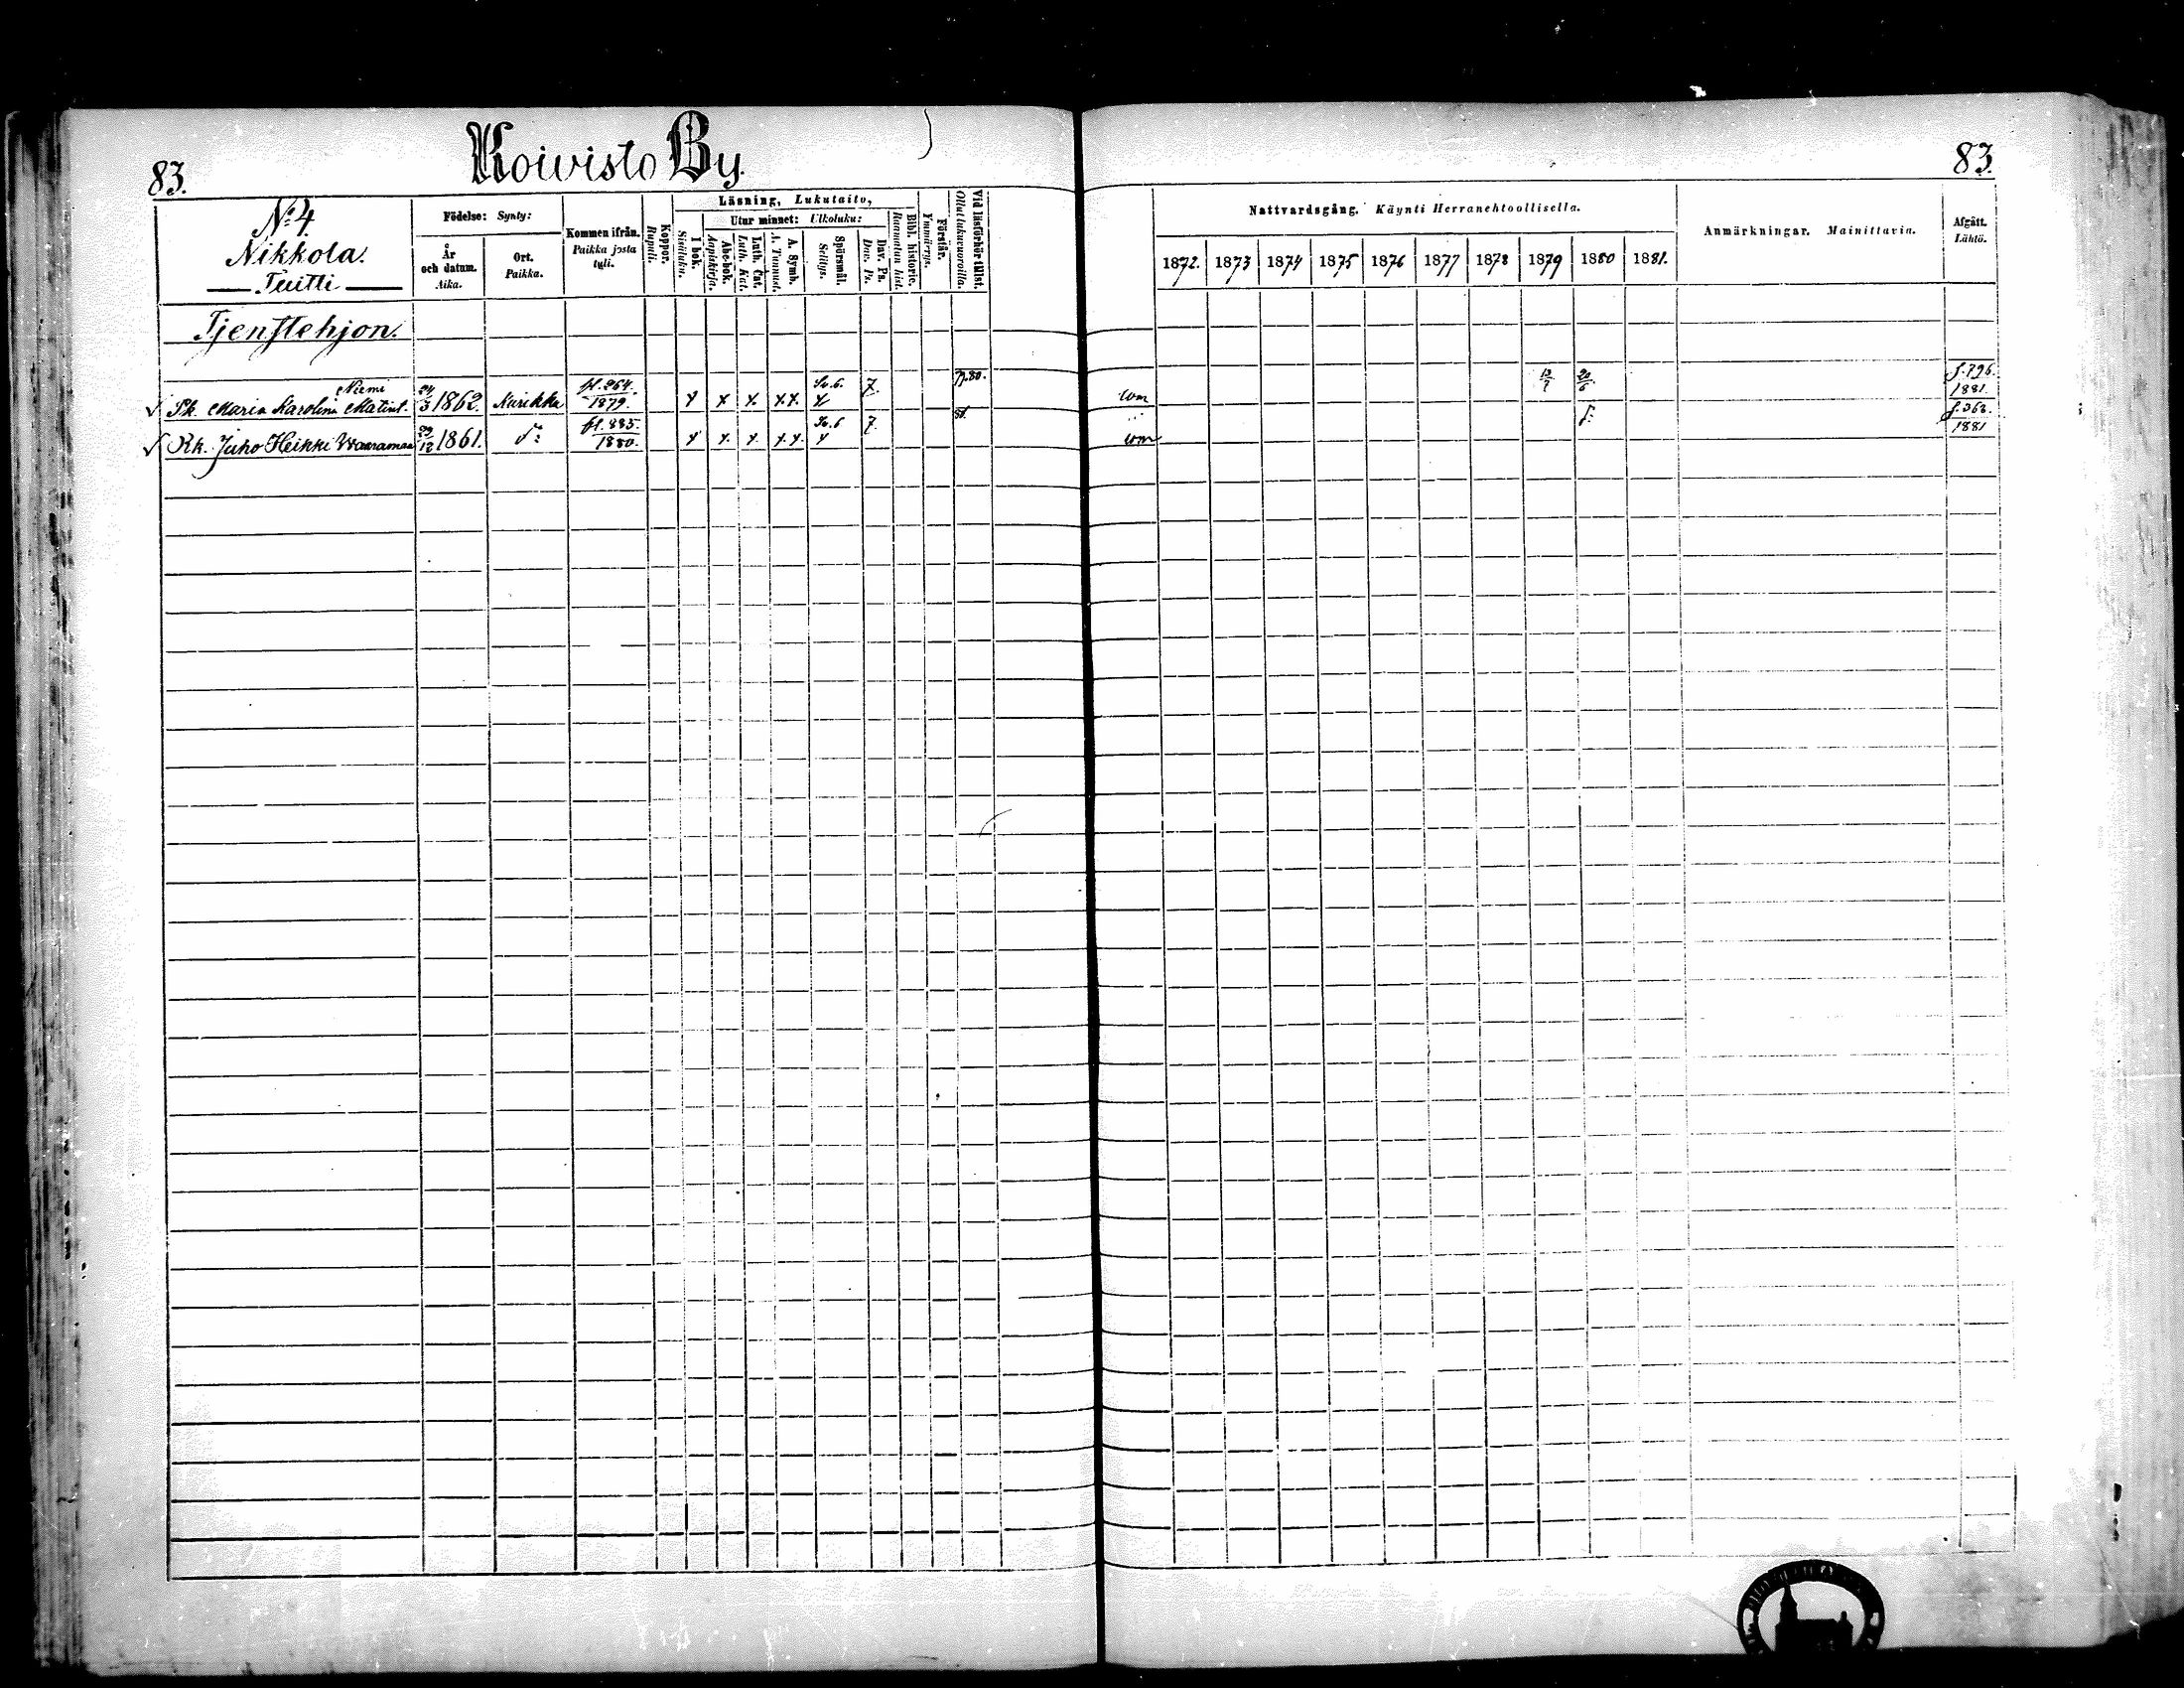 83.
Koivisto By.
83.
No 4
Nikkola.
Tuitti
Födelse: Synty:
År och datum. Aika.
Ort. Paikka.
Kommen ifrån. Paikka josta tuli.
Koppor. Rupuli.
Läsning, Lukutaito,
I bok. Sisäluku.
Utur minnet: Ulkoluku:
Abc-bok. Aapiskirja.
Luth. Cat. Luth. Kat.
A. Symb. A. Tunnust.
Spörsmål. Selitys.
Dav. Ps. Dav. Ps.
Bibl. historie. Raamatun hist.
Förstår. Ymmärrys.
Vid läsförhör tillst. Ollut lukuvuoroilla.
Nattvardsgång. Käynti Herranehtoollisella.
1872. 1873 1874 1875 1876 1877 1878 1879 1880 1881.
Anmärkningar. Mainittavia.
Afgått. Lähtö.
Tjenstehjon.
Niemi
Pk. Maria Karolina Matint. 24/3 1862. Kurikka fl. 264. 1879. x x x. x.x. Sv. 6. x 7. 79.80. com 13/7 20/6 f. 796. 1881.
Rk. Juho Heikki Waaramaa 29/12 1861. d:o fl. 883. 1880. x x. x. x.x. Sv. 6 x 7. 81. com f. 363. 1881